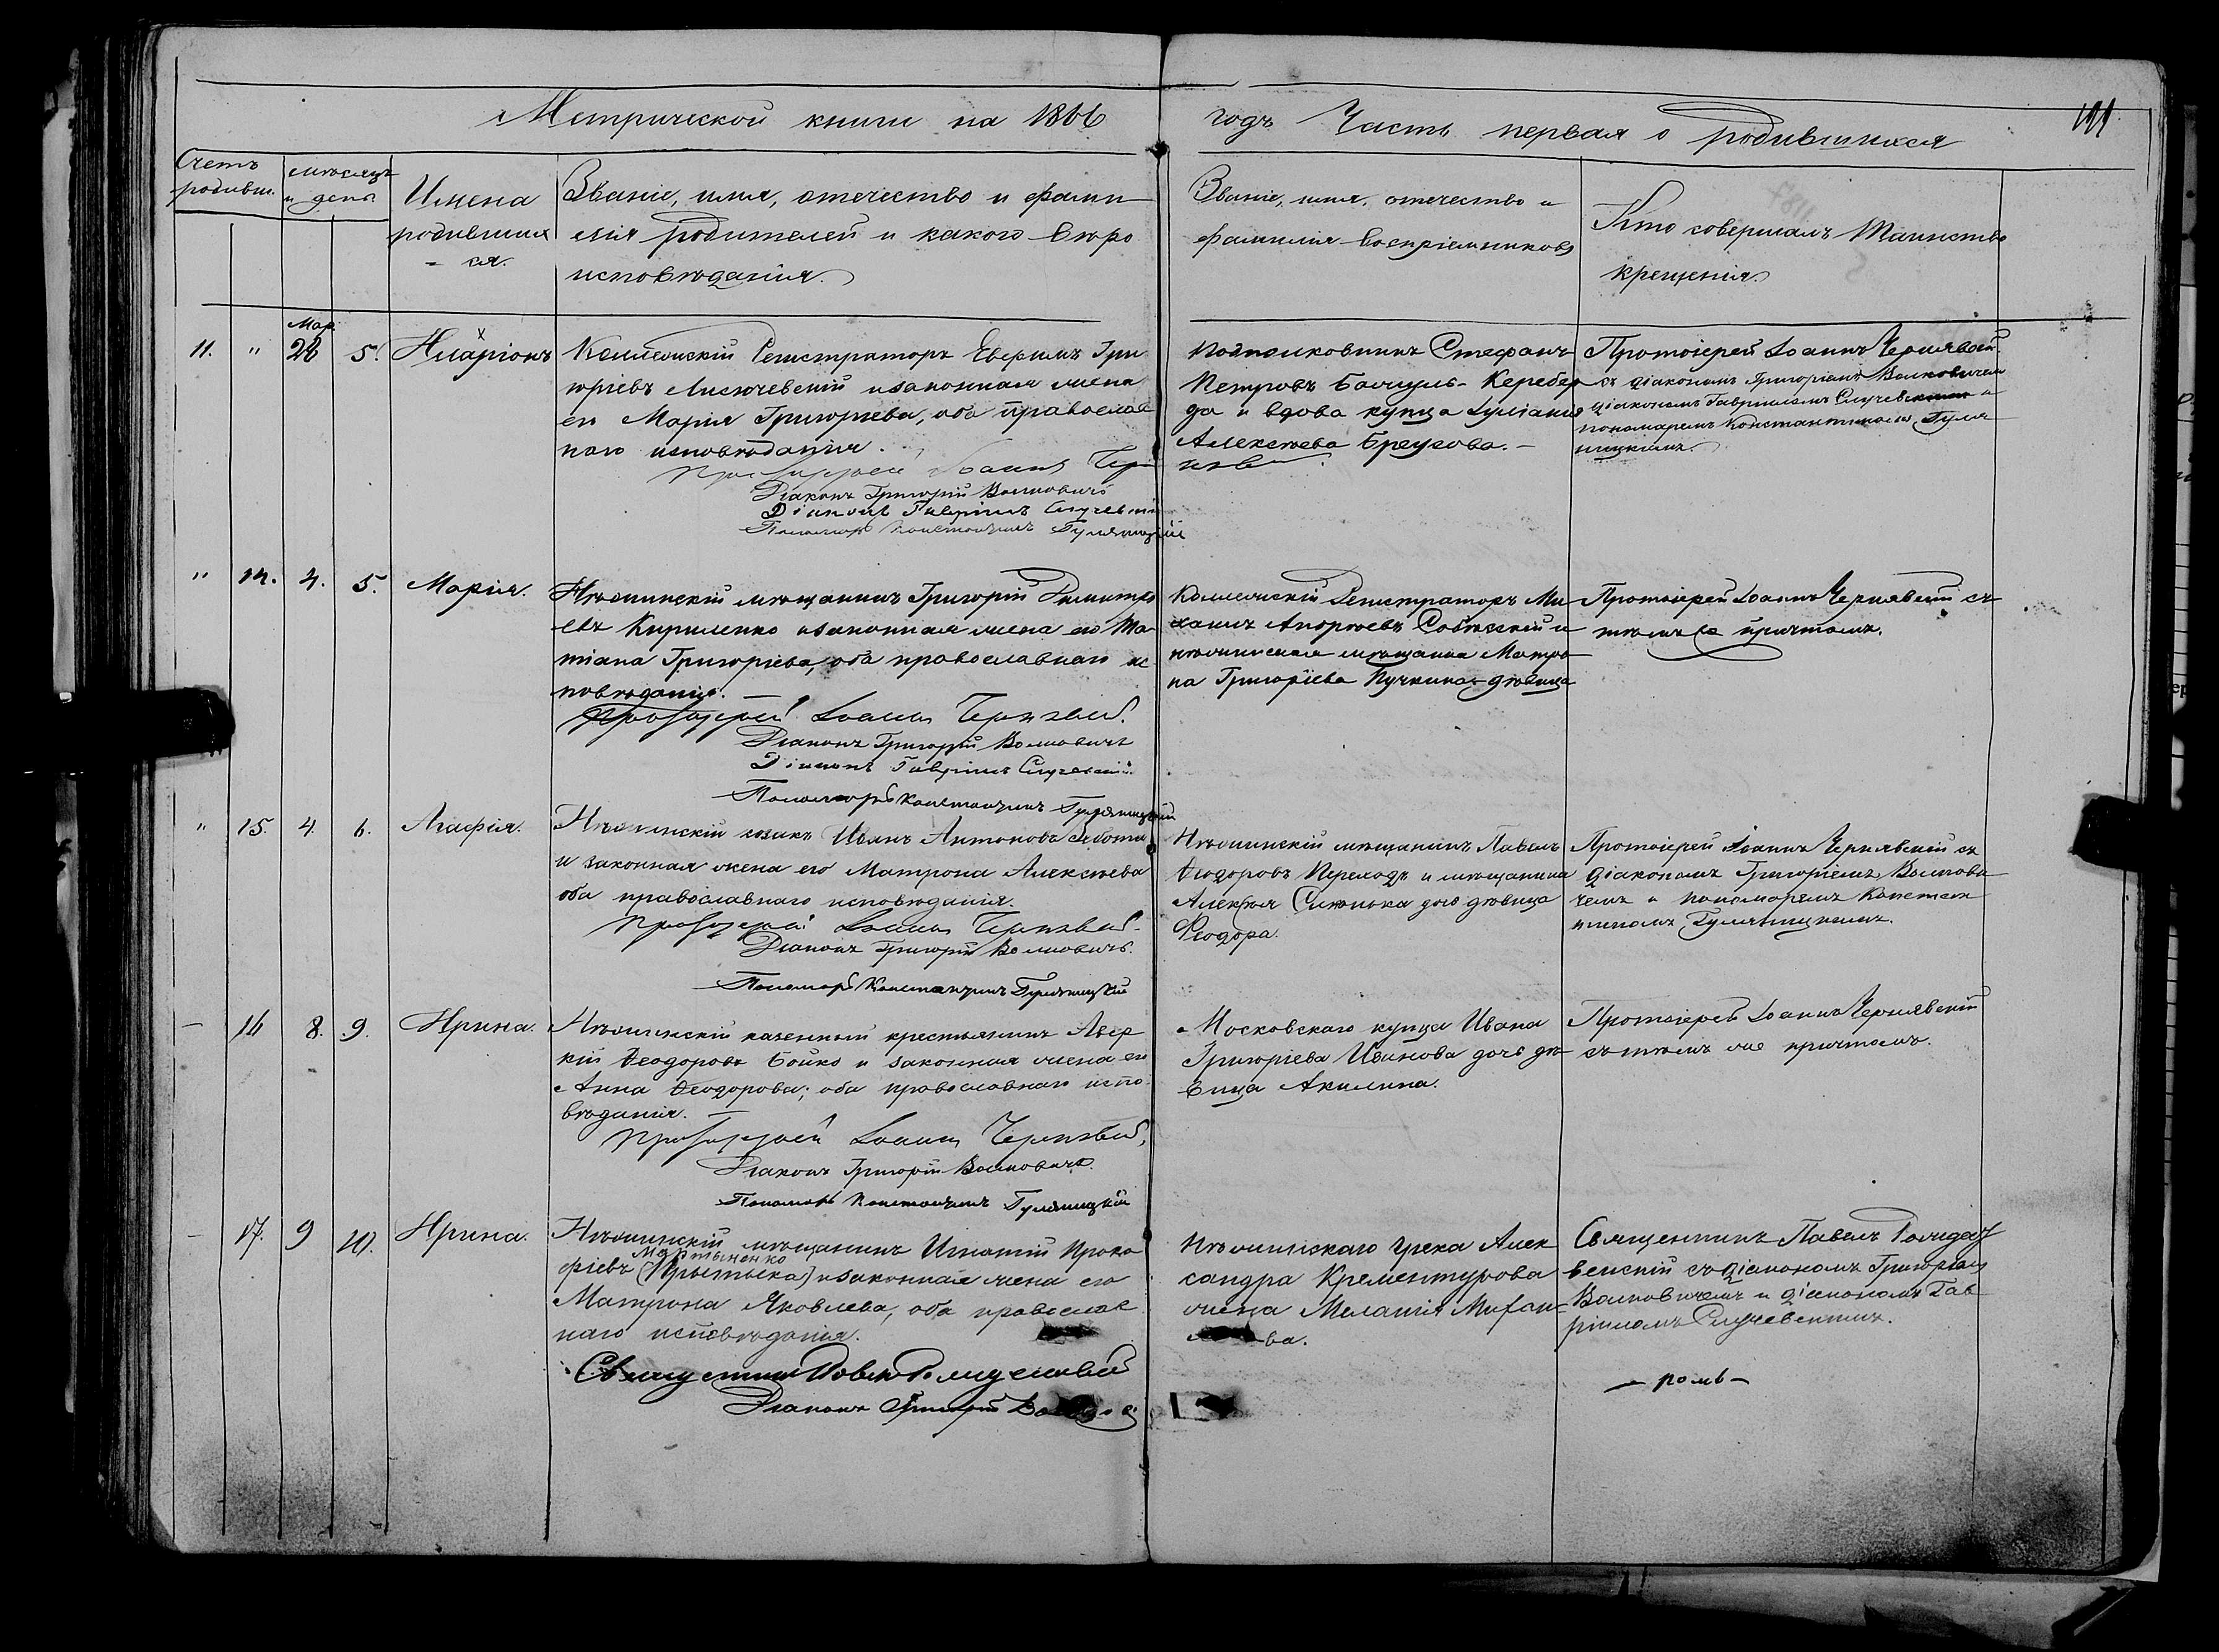 Метрической книги на 1866
годъ Часть первая о родившихся
Счетъ
родивш.
мѣсяцъ
и день
Имена
родивших
- ся.
Званіе, имя, отечество и фами-
лія родителей и какого вѣро
исповѣданія.
Званіе, имя, отечество и
фамилія воспріемниковъ
Кто совершалъ таинство
крещенія.
11. " Мар. 28 5. Иларіонъ
Коллежскій Регистраторъ Евфимъ Гри
горіевъ Лисючевскій и законная жена
его Марія Григорьева, оба православ
наго исповѣданія.
Протоіерей Іоаннъ
Діаконъ Григорій Волковичъ
Діаконъ Гавріилъ Случевскій
Пономарь Константинъ Гуляницкій
Подполковникъ Стефанъ
Петровъ Кересбер
да и вдова купца Іуліанія
Алексѣева Бреусова. -
Протоіерей Іоаннъ Чернявскій
съ діакономъ Григоріемъ Волковичемъ
діакономъ Гавріиломъ Случевскимъ и
пономаремъ Константиномъ Гуля
ницкимъ.
" 14. 4. 5. Марія.
Нѣжинскій мѣщанинъ Григорій Димитрі
евъ Кириленко и законная жена его Та-
тіана Григоріева, оба православнаго ис
повѣданія.
Протоіерей Іоаннъ Чернявскій.
Діаконъ Григорій Волковичъ
Діаконъ Гавріилъ Случевскій
Пономарь Константинъ Гуляницкій
Коллежскій Регистраторъ Ми
хаилъ Андреевъ Собѣскій и
нѣжинская мѣщанка Матро
на Григоріева Пучкина дѣвица
Протоіерей Іоаннъ Чернявскій съ
тѣмъ же причтомъ.
" 15. 4. 6. Агафія.
Нѣжинскій козакъ Иванъ Антоновъ
и законная жена его Матрона Алексѣева
оба православнаго исповѣданія.
Протоіерей Іоаннъ Чернявскій.
Діаконъ Григорій Волковичъ.
Пономарь Константинъ Гуляницкій
Нѣжинскій мѣщанинъ Павелъ
Ѳеодоровъ Переходъ и мѣщанина
дѣвица
Ѳеодора.
Протоіерей Іоаннъ Чернявскій съ
діакономъ Григоріемъ Волкови
чемъ и пономаремъ Констан
тиномъ Гуляницкимъ.
- 16 8. 9. Ирина.
Нѣжинскій казенный крестьянинъ Авер
кій Ѳеодоровъ Бойко и законная жена его
Анна Ѳеодорова; оба православнаго испо
вѣданія.
Протоіерей Іоаннъ Чернявскій,
Діаконъ Григорій Волковичъ.
Пономарь Константинъ Гуляницкій
Московскаго купца Ивана
Григоріева Иванова дочь дѣ
вица Акилина.
Протоіерей Іоаннъ Чернявскій
съ тѣмъ же причтомъ.
- 17. 9 10. Ирина.
Нѣжинскій мѣщанинъ Игнатій Проко
Мартыненко
фіевъ и законная жена его
Матрона Яковлева, оба православ
наго исповѣданія.
Священникъ Павелъ
Діаконъ Григорій
Нѣжинскаго грека Алек
сандра Крементурова
жена Меланія
ва.
Священникъ Павелъ
вскій съ діакономъ Григоріемъ
Волковичемъ и діакономъ Гав
ріиломъ Случевскимъ.